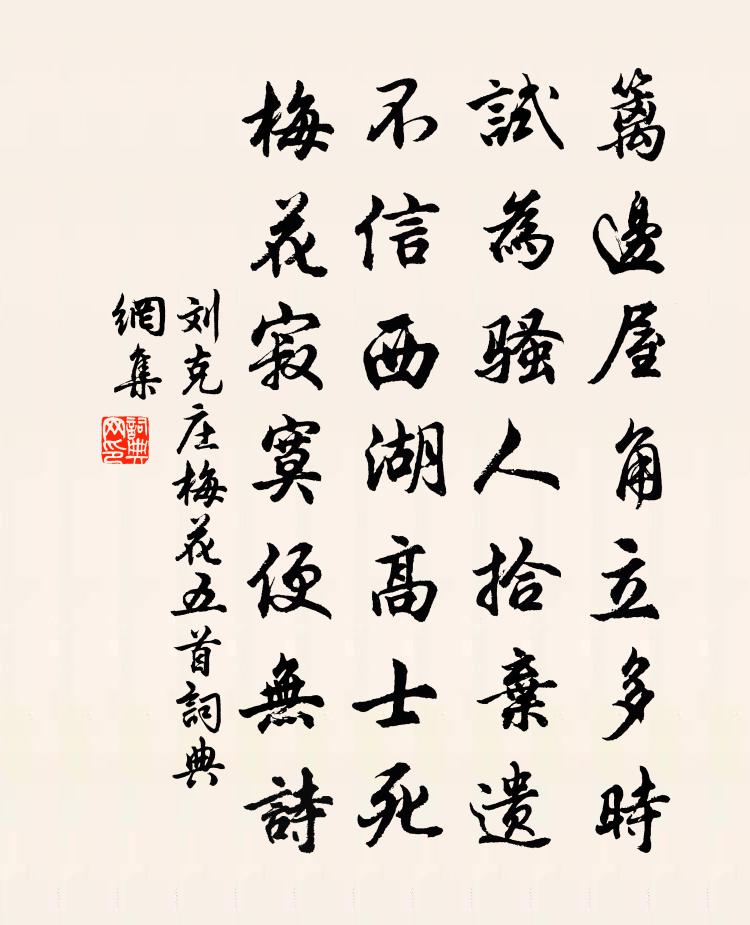 籬邊屋角立多時
試為騷人拾棄遺
不信西湖高士死
梅花寂寞便無詩
刘克庄梅花五首詞典
網集
詞典
网印